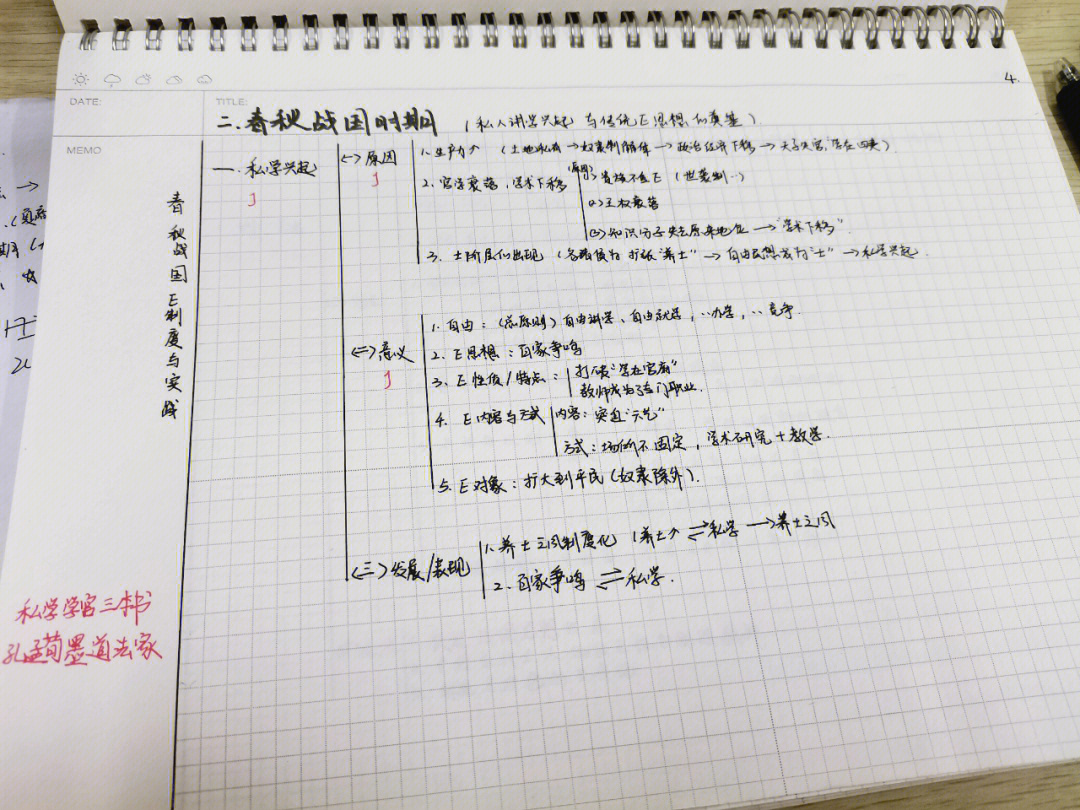 4.
DATE:
TITLE:
二.春秋战国时期 (私人讲学兴起 与传统E思想的奠基).
MEMO
春秋战国E制度与实战
一.私学兴起
(一)原因
1.生产力↑ (土地私有→奴隶制解体→政治经济下移→天子失官,学在四夷)
2.官学衰落,学术下移
(1)贵族不重E (世袭制..)
(2)王权衰落
(3)知识分子失去原来地位→"学术下移".
3.士阶层的出现 (各诸侯为扩张"养士"→自由民想成为"士"→私学兴起.
(二)意义
1.自由:(总原则)自由讲学、自由就学,..办学,..竞争.
2.E思想:百家争鸣
3.E性质/特点: 打破"学在官府"
教师成为了专门职业.
4.E内容与方式 内容:突破"六艺"
方式:场所不固定,学术研究+教学.
5.E对象:扩大到平民(奴隶除外).
(三)发展/表现
1.养士之风制度化 (养士↑⇌私学→养士之风
2.百家争鸣⇌私学.
私学学宫三本书
孔孟荀墨道法家